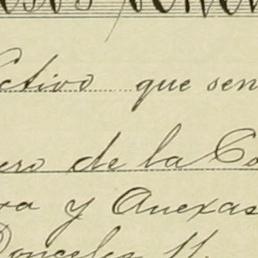 ctivo que sen
ero de la Co
ra y Anexas
Donceles 11.